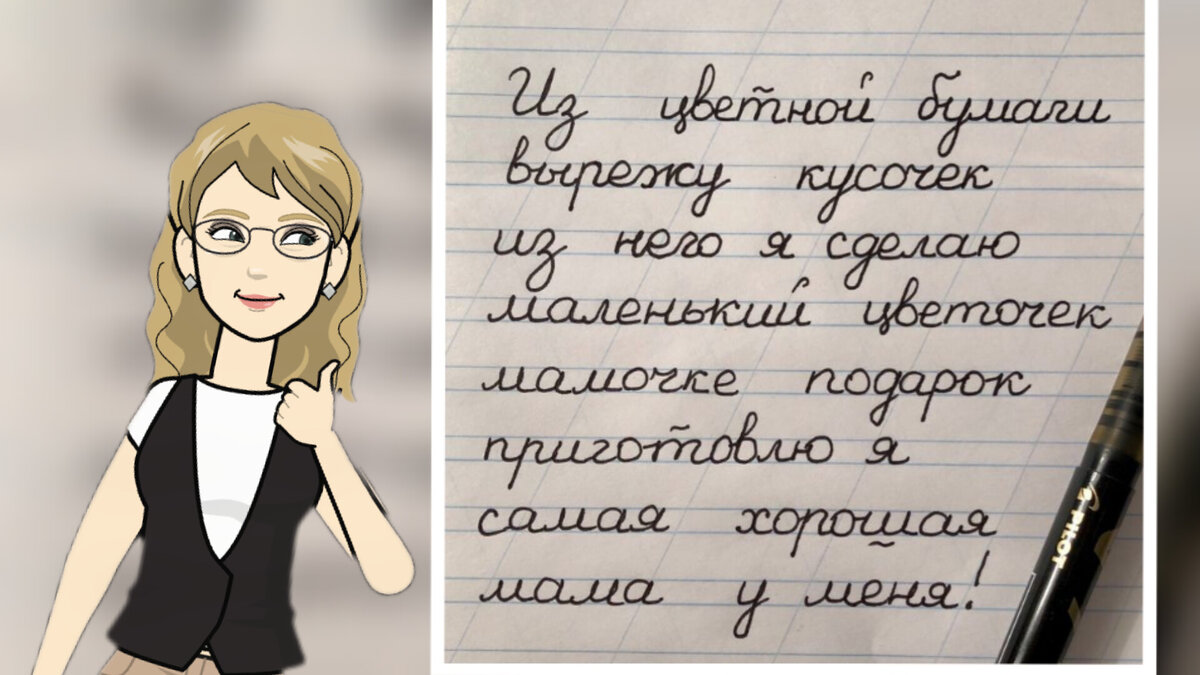 Из цветной бумаги
вырежу кусочек
из него я сделаю
маленький цветочек
мамочке подарок
приготовлю я
самая хорошая
мама у меня!
PILOT